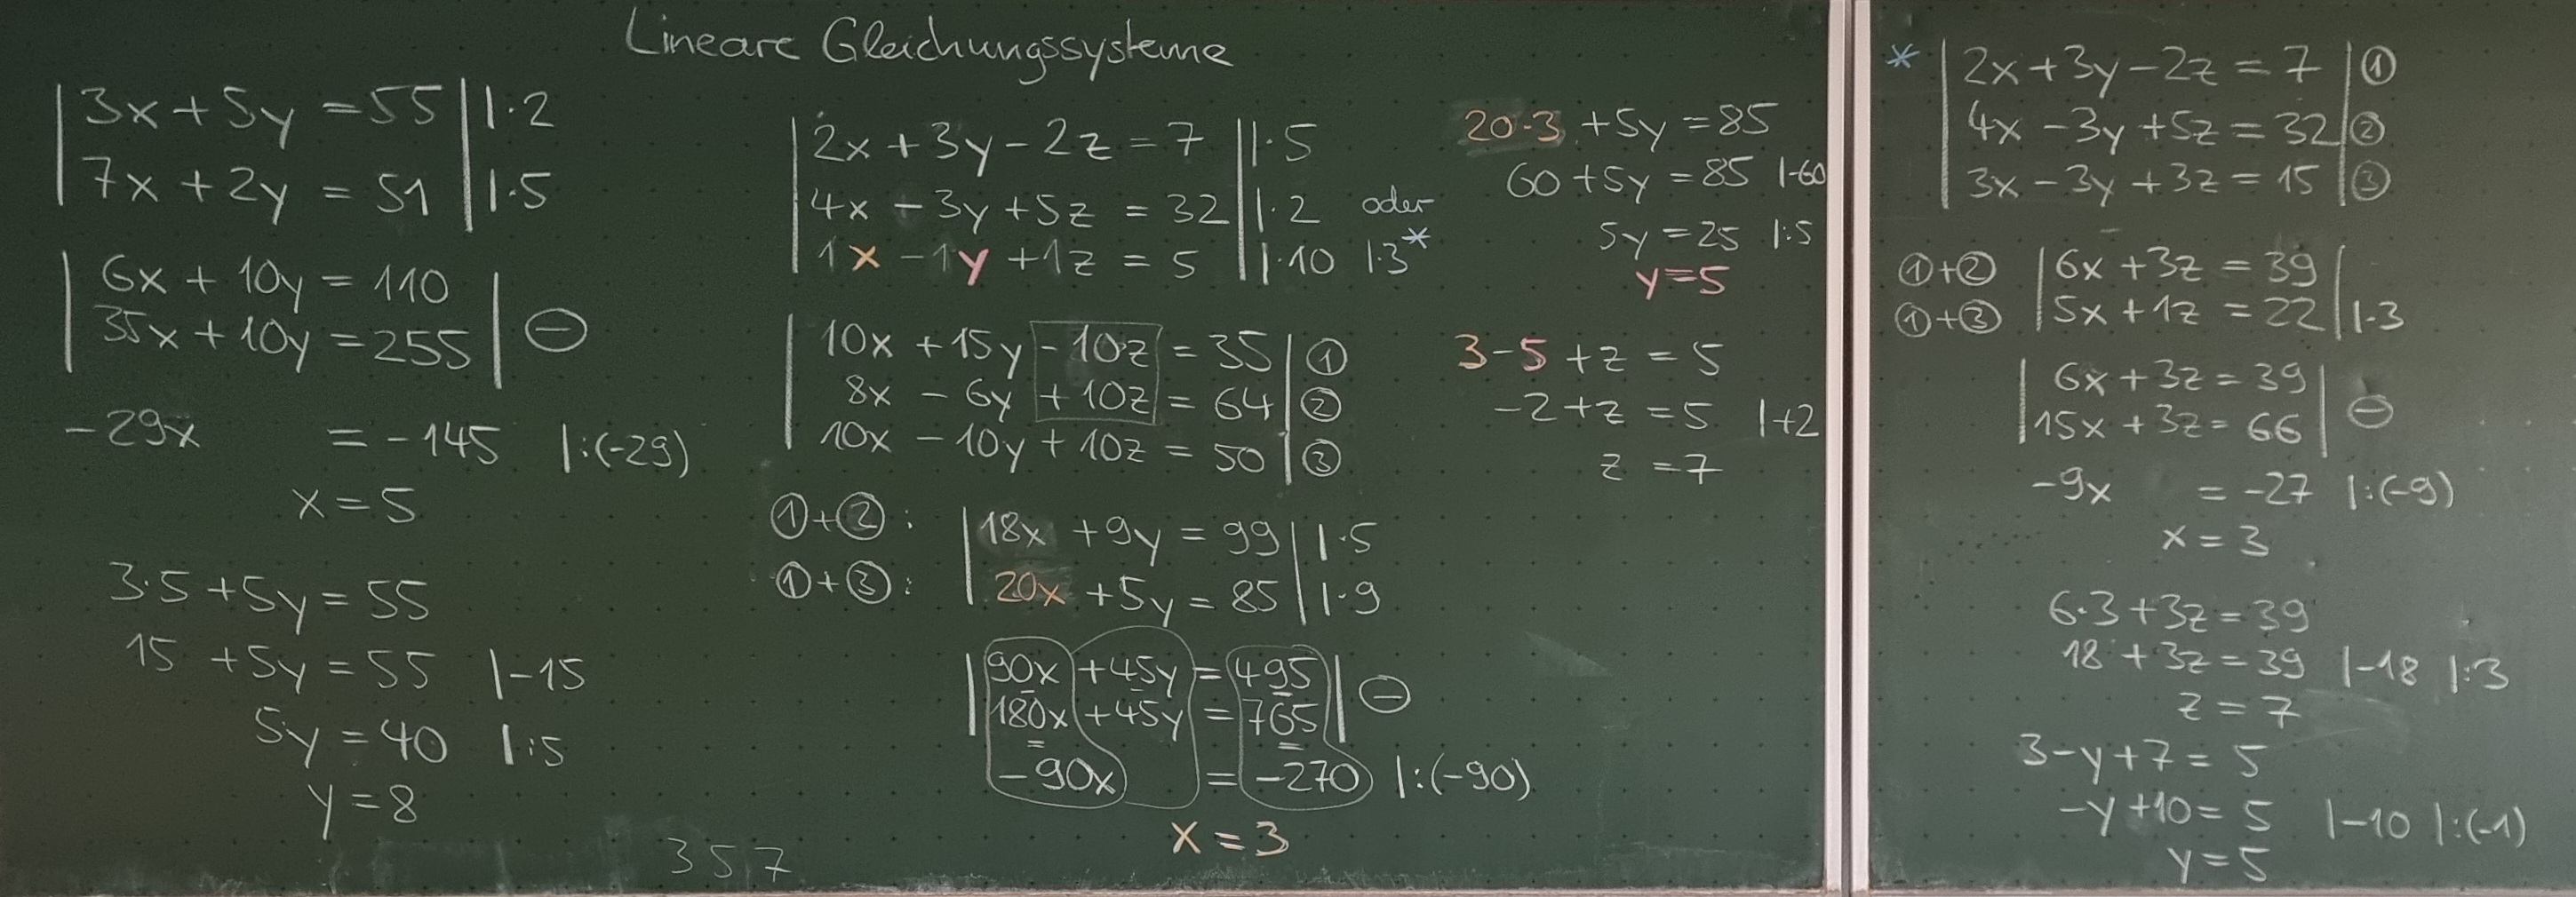 Lineare Gleichungssysteme
3x + 5y = 55 | |·2
7x + 2y = 51 | |·5
6x + 10y = 110
35x + 10y = 255 | ⊖
-29x = -145 |:(-29)
x = 5
3·5 + 5y = 55
15 + 5y = 55 |-15
5y = 40 |:5
y = 8
2x + 3y - 2z = 7 | |·5
4x - 3y + 5z = 32 | |·2 oder
1x - 1y + 1z = 5 | |·10 |·3*
10x + 15y - 10z = 35 | ①
8x - 6y + 10z = 64 | ②
10x - 10y + 10z = 50 | ③
①+②: | 18x + 9y = 99 | |·5
①+③: | 20x + 5y = 85 | |·9
90x + 45y = 495
180x + 45y = 765 | ⊖
-90x = -270 |:(-90)
x = 3
3 5 7
20·3 + 5y = 85
60 + 5y = 85 |-60
5y = 25 |:5
y = 5
3 - 5 + z = 5
-2 + z = 5 |+2
z = 7
* | 2x + 3y - 2z = 7 | ①
4x - 3y + 5z = 32 | ②
3x - 3y + 3z = 15 | ③
①+② | 6x + 3z = 39 |
①+③ | 5x + 1z = 22 | |·3
6x + 3z = 39
15x + 3z = 66 | ⊖
-9x = -27 |:(-9)
x = 3
6·3 + 3z = 39
18 + 3z = 39 |-18 |:3
z = 7
3 - y + 7 = 5
-y + 10 = 5 |-10 |:(-1)
y = 5